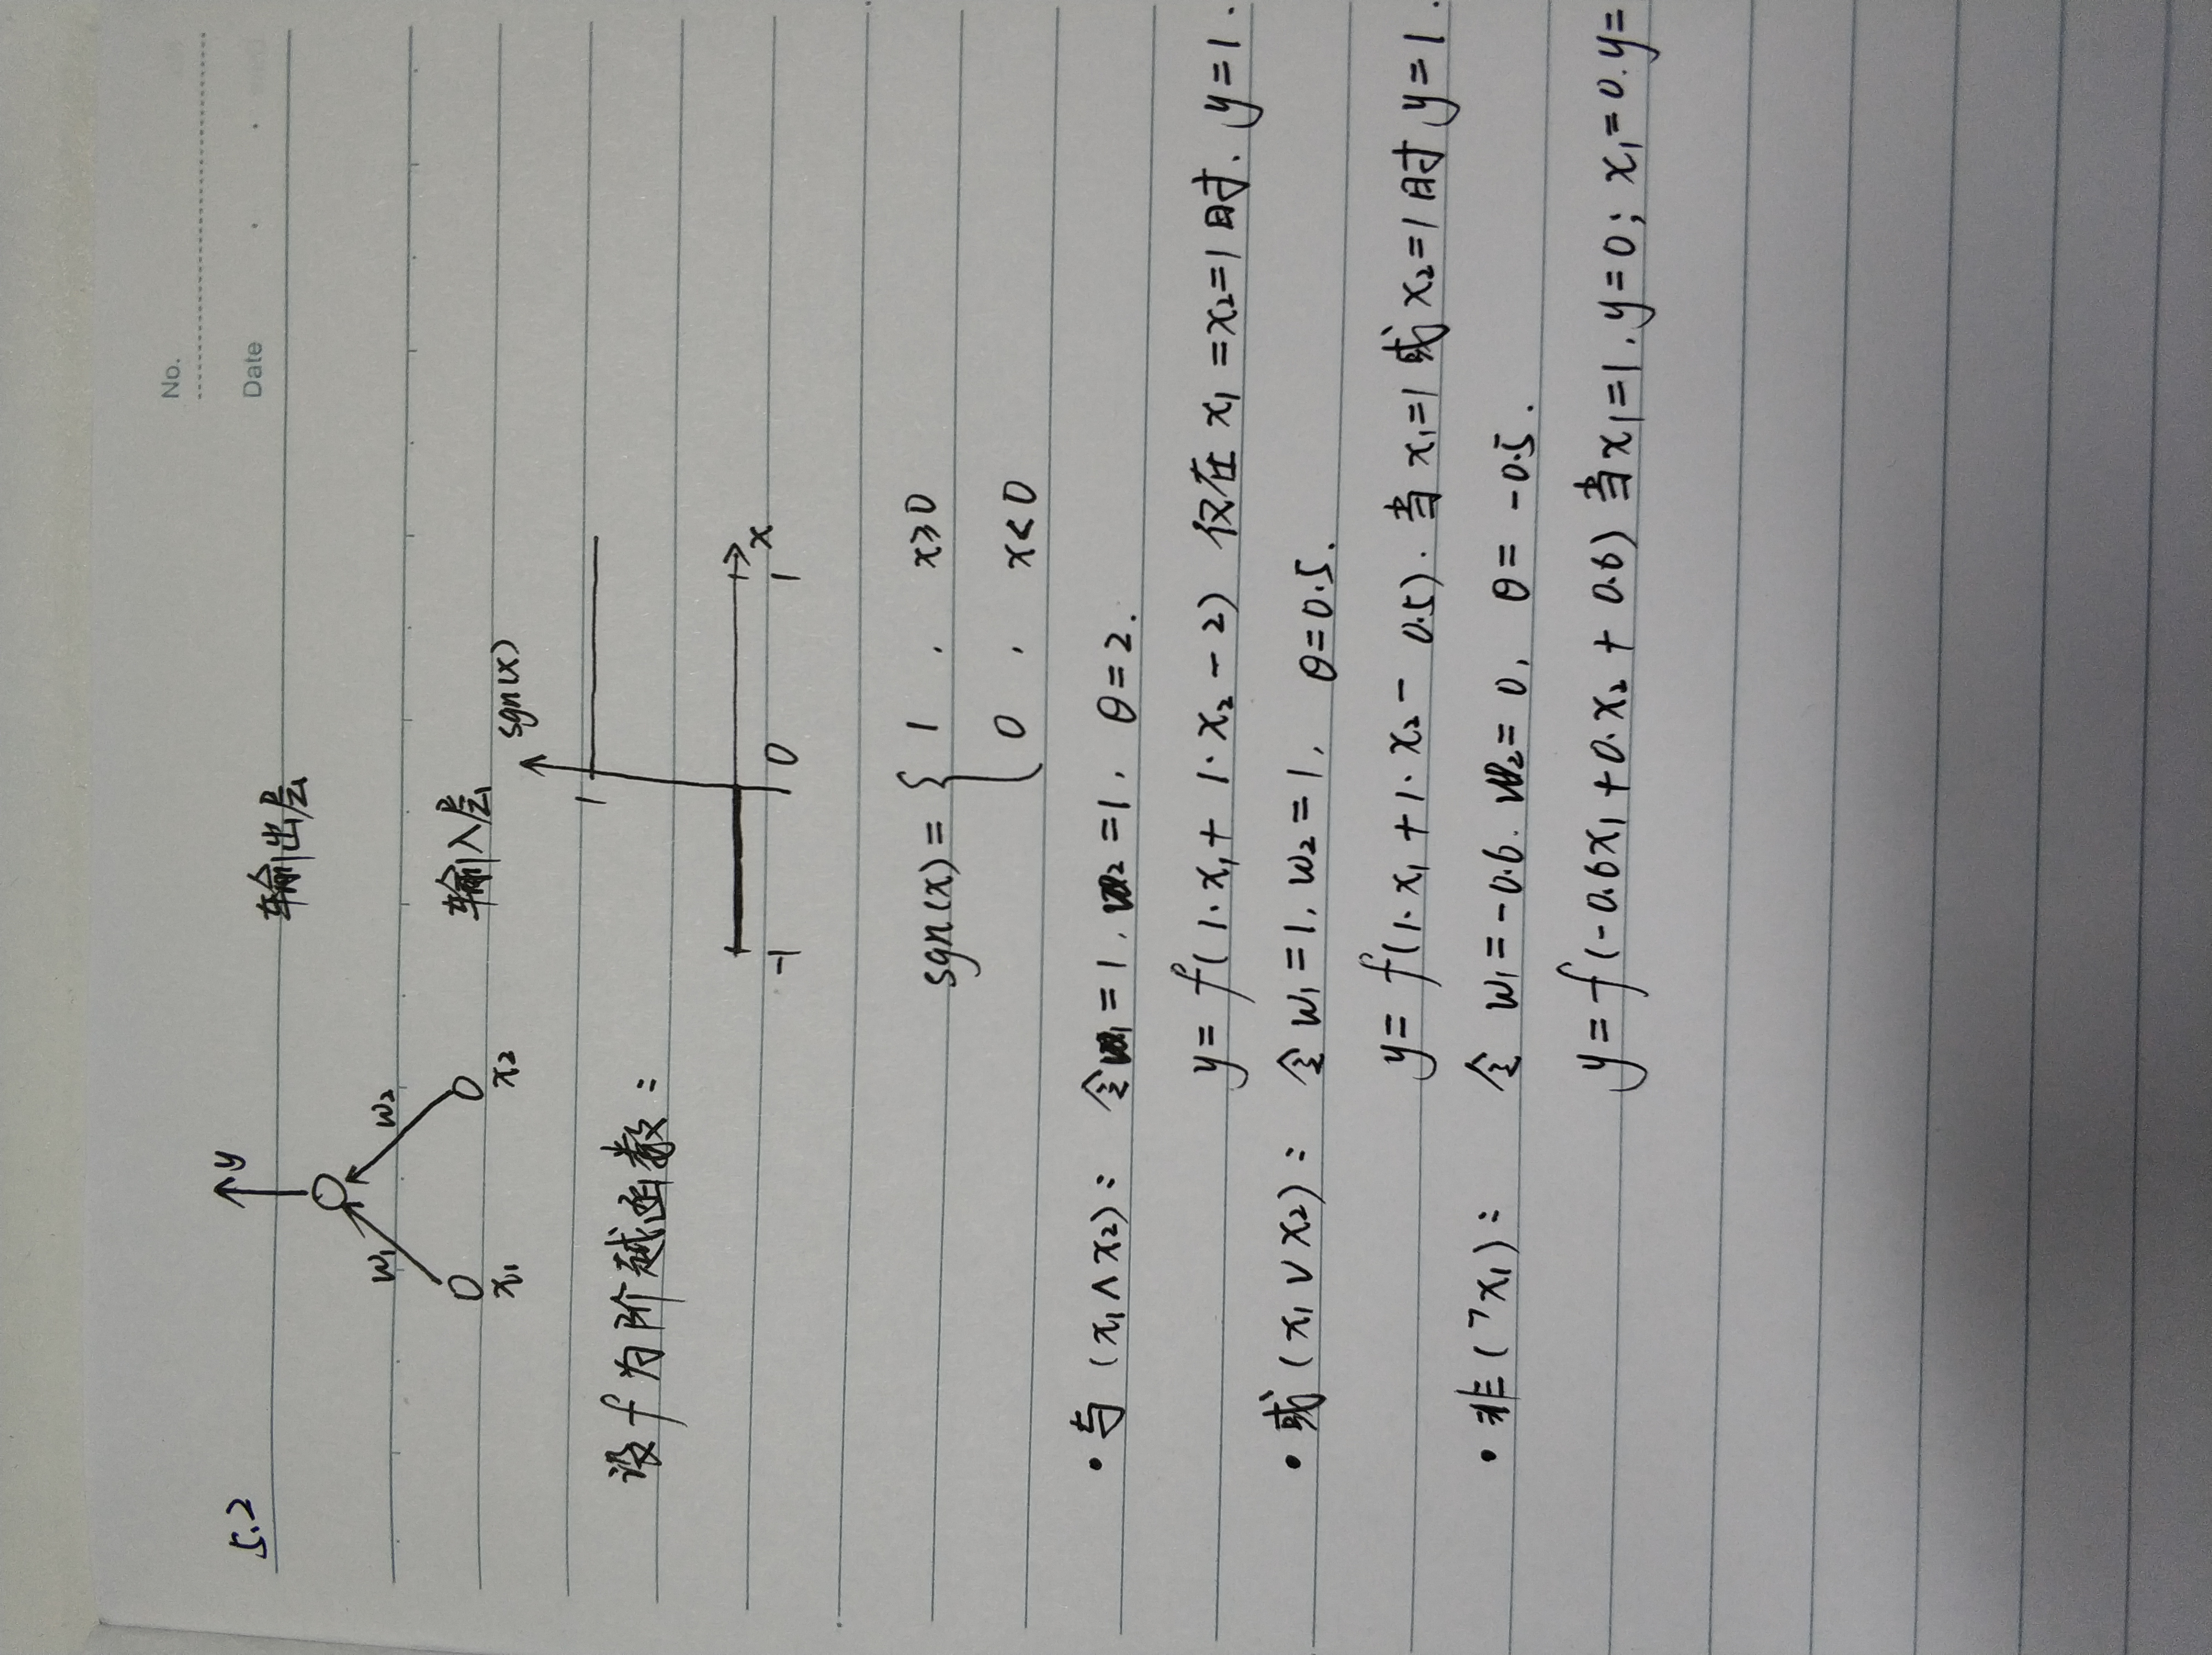 No.
Date
5.2
y
输出层
w₁ w₂
输入层
x₁ x₂
sgn(x)
1
设f为阶越函数:
-1 0 1 x
sgn(x) = { 1 , x≥0
0 , x<0
• 与 (x₁∧x₂): 令w₁=1, w₂=1, θ=2.
y= f(1·x₁+ 1·x₂-2) 仅在 x₁=x₂=1时, y=1.
• 或 (x₁∨x₂): 令w₁=1, w₂=1, θ=0.5.
y= f(1·x₁+1·x₂- 0.5). 当x₁=1或x₂=1时 y=1.
• 非(¬x₁): 令 w₁=-0.6. w₂=0, θ= -0.5.
y=f(-0.6x₁+0·x₂+0.6) 当x₁=1, y=0; x₁=0.y=